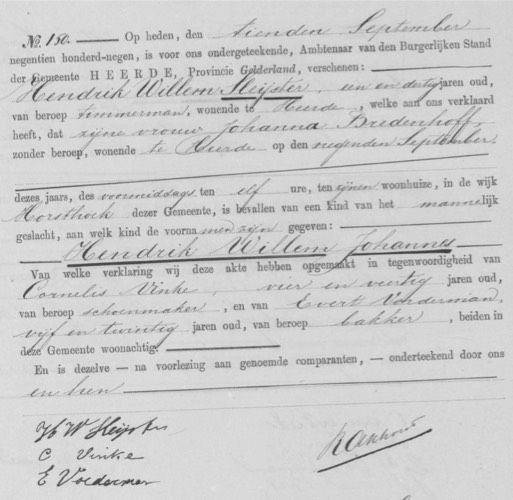 No. 150. Op heden, den tienden September
negentien honderd-negen, is voor ons ondergeteekende, Ambtenaar van den Burgerlijken Stand
der Gemeente HEERDE, Provincie Gelderland, verschenen:
Hendrik Willem Heijster, een en dertig jaren oud,
van beroep timmerman, wonende te Heerde, welke aan ons verklaard
heeft, dat zijne vrouw Johanna Bredenhoff,
zonder beroep, wonende te Heerde op den negenden September
dezes jaars, des voormiddags ten elf ure, ten zijnen woonhuize, in de wijk
Horsthoek dezer Gemeente, is bevallen van een kind van het mannelijk
geslacht, aan welk kind de voornamen zijn gegeven:
Hendrik Willem Johannes
Van welke verklaring wij deze akte hebben opgemaakt in tegenwoordigheid van
Cornelis Vinke, vier en veertig jaren oud,
van beroep schoenmaker, en van Evert Vorderman,
vijf en twintig jaren oud, van beroep bakker, beiden in
deze Gemeente woonachtig.
En is dezelve — na voorlezing aan genoemde comparanten, — onderteekend door ons
en hen
H W Heijster
C Vinke
E Vorderman